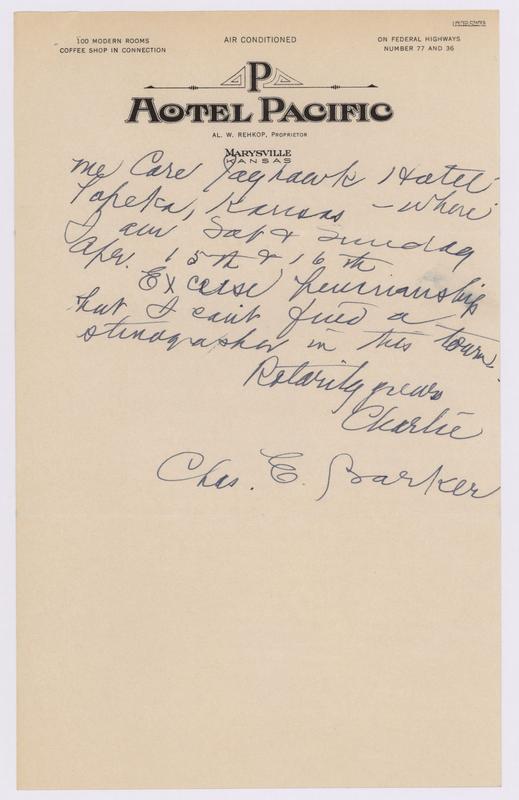 100 MODERN ROOMS
COFFEE SHOP IN CONNECTION
AIR CONDITIONED
ON FEDERAL HIGHWAYS
NUMBER 77 AND 36
P
HOTEL PACIFIC
AL. W. REHKOP, PROPRIETOR
MARYSVILLE
KANSAS
me Care Jayhawk Hotel
Topeka, Kansas - where
I am Sat & Sunday
Apr. 15th & 16th
Excuse penmanship
but I can't find a
stenographer in this town.
Rotarily yours
Charlie
Chas. E. Barker